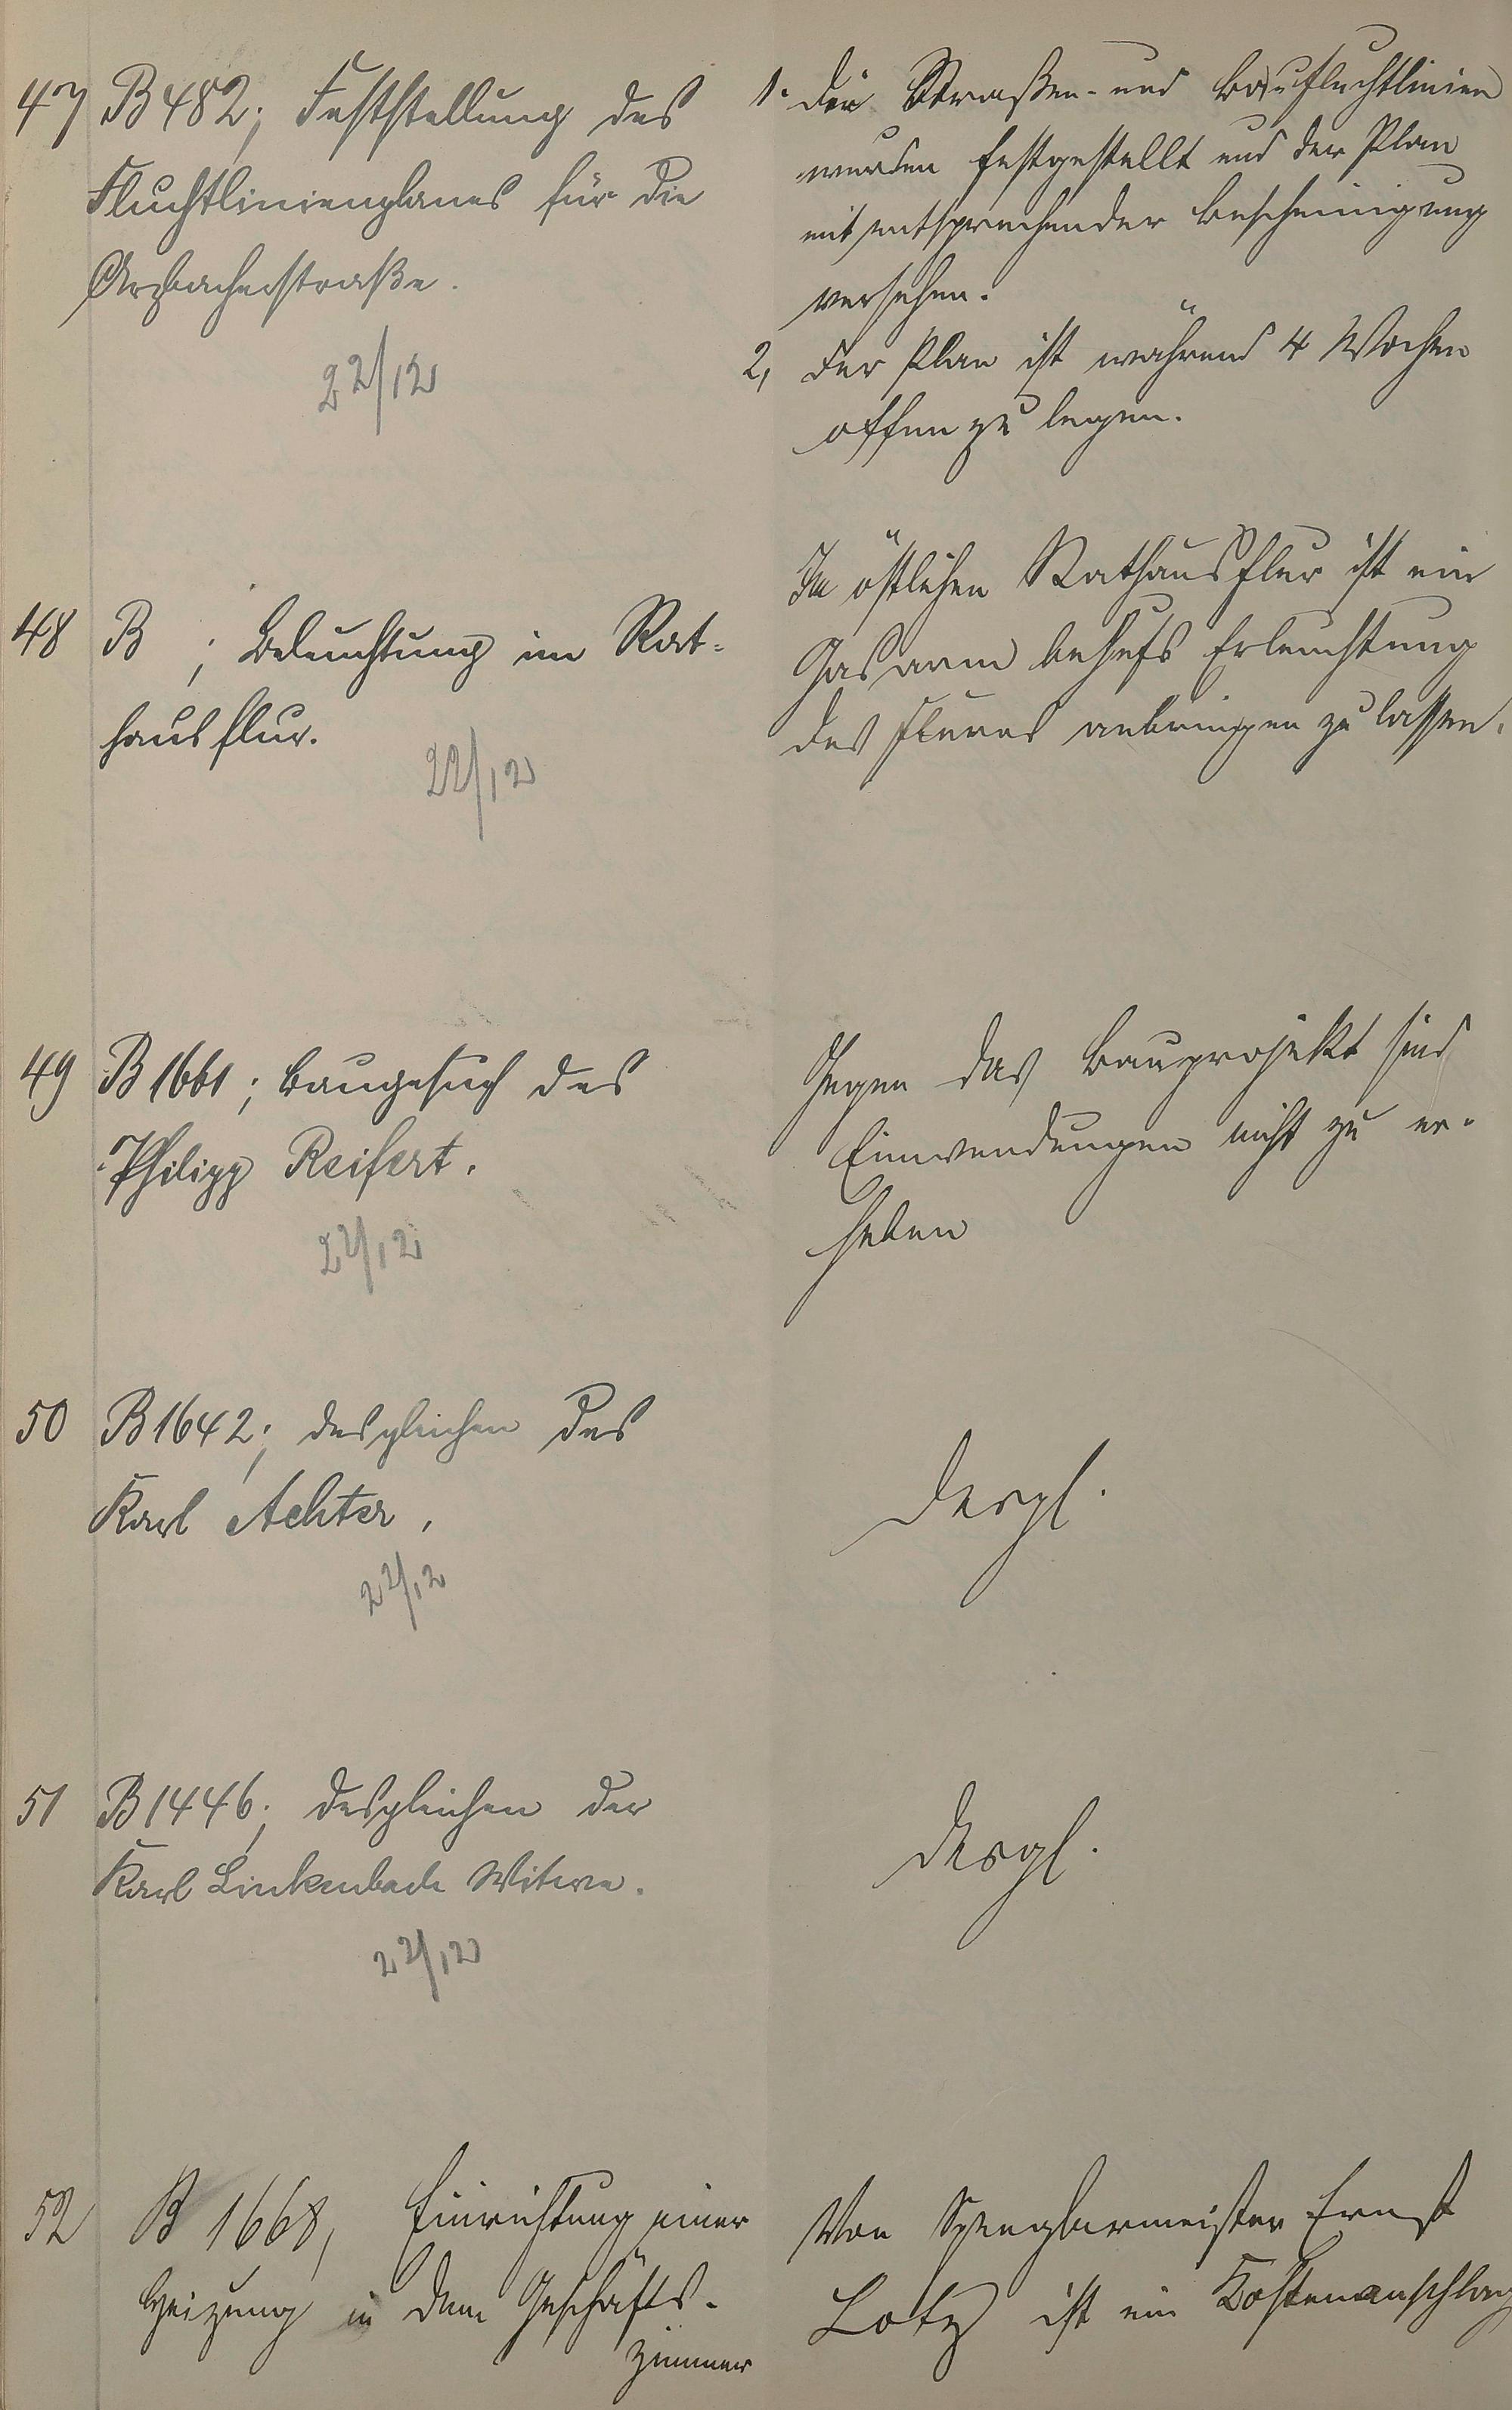 47 B 482; Feststellung des
Fluchtlinienplanes für die
Arzbacherstraße.
22/12
1. Die Straßen- und Baufluchtlinien
wurden festgestellt und der Plan
mit entsprechender Bescheinigung
versehen.
2, Der Plan ist während 4 Wochen
offen zu legen.
48 B ; Beleuchtung im Rat-
hausflur.
22/12
Im östlichen Rathausflur ist ein
Gasarm behufs Erleuchtung
des Flures anbringen zu lassen.
49 B 1661; Baugesuch des
Philipp Reifert.
22/12
Gegen das Bauprojekt sind
Einwendungen nicht zu er-
heben
50 B 1642; desgleichen des
Karl Achter,
22/12
desgl.
51 B 1446; desgleichen der
Karl Linkenbach Witwe.
22/12
desgl.
52 B 1668, Einrichtung einer
Heizung in dem Geschäfts-
zimmer
Von Spenglermeister Ernst
Lotz ist ein Kostenanschlag